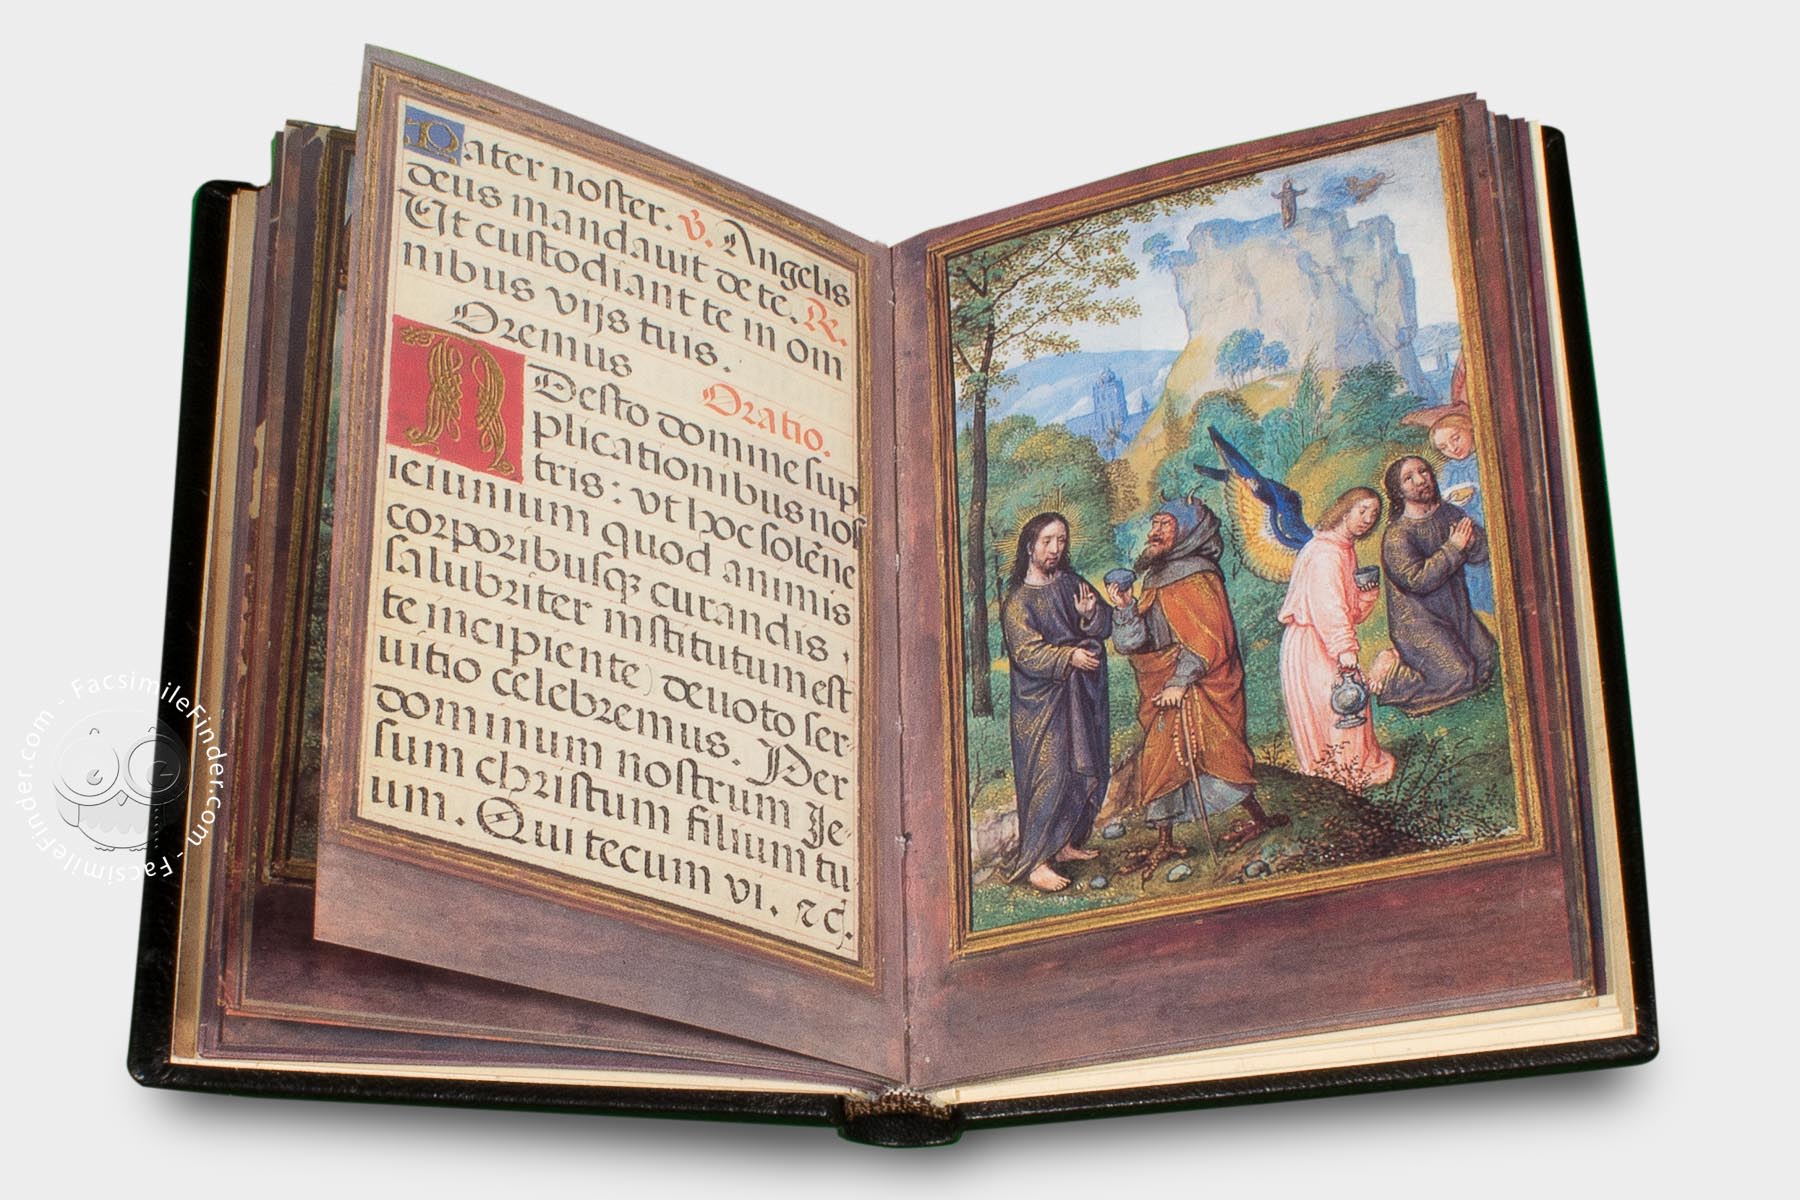 Pater noster. V. Angelis
deus mandauit de te. R.
Vt custodiant te in om
nibus vijs tuis.
Oremus Oratio.
ADesto domine sup
plicationibus nos
tris: vt hoc solēne
ieiunium quod animis
corporibusq; curandis,
salubriter institutum est
te incipiente) deuoto ser-
uitio celebremus. Per
dominum nostrum Je-
sum christum filium tu
um. Qui tecum vi. ⁊c̄.
FacsimileFinder.com - FacsimileFinder.com - FacsimileFinder.com